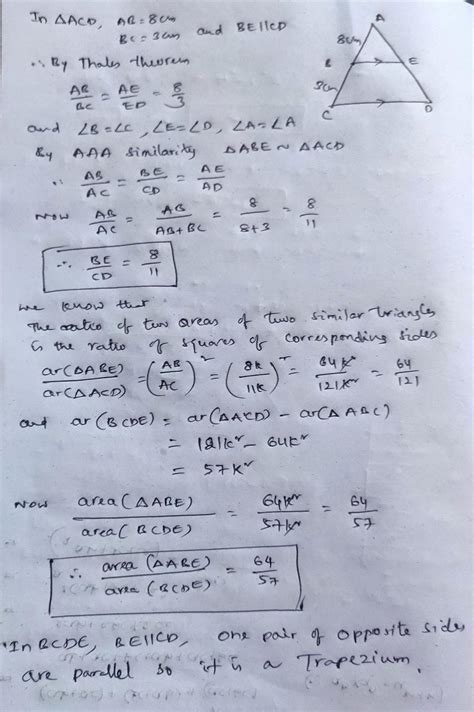 In △ACD, AB = 8cm
BC = 3cm and BE||CD
A
8cm
B E
3cm
C D
∴ By Thales theorem
AB/BC = AE/ED = 8/3
and ∠B=∠C, ∠E=∠D, ∠A=∠A
By AAA similarity △ABE ~ △ACD
∴ AB/AC = BE/CD = AE/AD
Now AB/AC = AB/AB+BC = 8/8+3 = 8/11
∴ BE/CD = 8/11
we know that
The ratio of two areas of two similar triangles
is the ratio of squares of corresponding sides
ar(△ABE)/ar(△ACD) = (AB/AC)² = (8k/11k)² = 64k²/121k² = 64/121
and ar(BCDE) = ar(△ACD) - ar(△ABC)
= 121k² - 64k²
= 57k²
Now area(△ABE)/area(BCDE) = 64k²/57k² = 64/57
∴ area(△ABE)/area(BCDE) = 64/57
In BCDE, BE||CD, one pair of opposite sides
are parallel so it is a Trapezium.